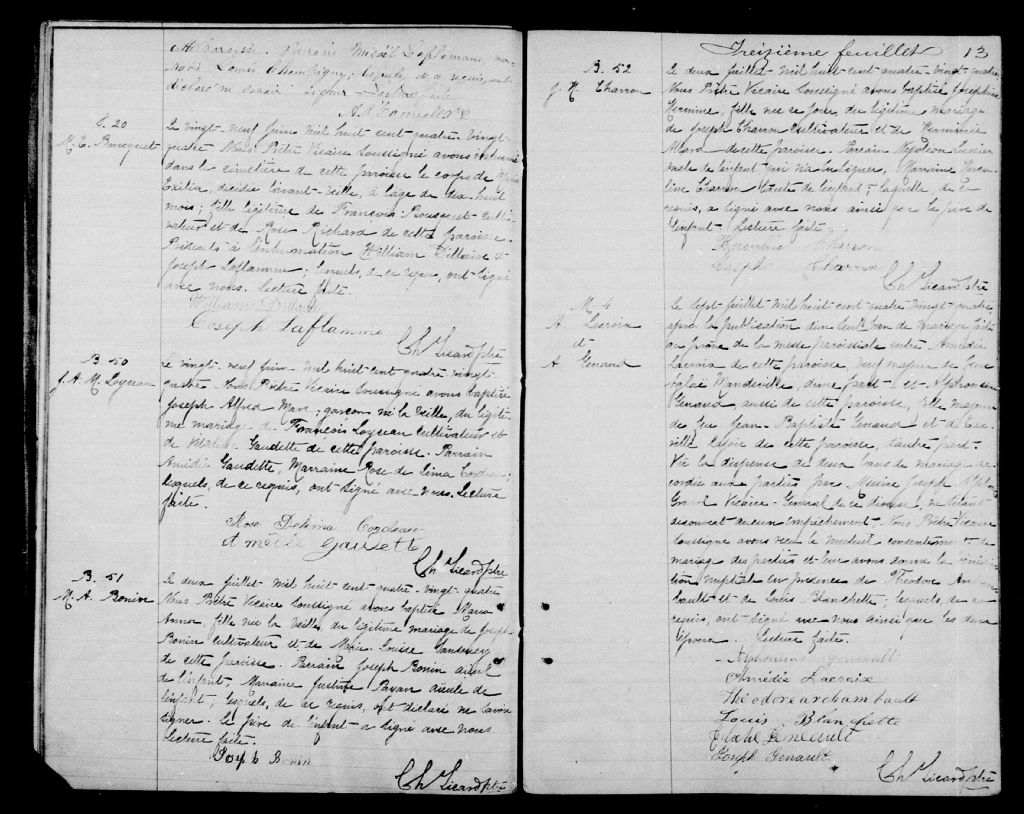 de cette paroisse. Parrain Misaël Laflamme, mar-
raine Louise Champigny, lesquels, de ce requis, ont
déclaré ne savoir signer. Lecture faite.
S. 20
M. E. Bousquet
Le vingt-neuf juin mil huit-cent quatre-vingt-
quatre Nous Prêtre Vicaire soussigné avons inhumé
dans le cimetière de cette paroisse le corps de Marie
Exilia, décédée l'avant-veille, à l'âge de dix-huit
mois; fille légitime de François Bousquet culti-
vateur et de Rose Richard de cette paroisse.
Présents à l'inhumation William
Joseph Laflamme; lesquels, de ce requis, ont signé
avec nous. Lecture faite.
William
Joseph Laflamme
Ch Sicard ptre
B. 50
J. A. M. Loyseau
Le vingt-neuf juin mil huit-cent-quatre-vingt-
quatre Nous Prêtre Vicaire soussigné avons baptisé
Joseph Alfred Marc; garçon né la veille, du légiti-
me mariage de François Loyseau cultivateur et
de Gaudette de cette paroisse. Parrain
Amédée Gaudette, Marraine Rose de Lima Cordeau;
lesquels, de ce requis, ont signé avec nous. Lecture
faite.
Rose Delima Cordeau
Amédé Gaudette
Ch Sicard ptre
B. 51
M. A. Bonin
Le deux juillet mil huit cent-quatre-vingt-quatre
Nous Prêtre Vicaire soussigné avons baptisé Maria
Anna, fille née la veille, du légitime mariage de Joseph
Bonin cultivateur et de Marie-Louise
de cette paroisse. Parrain Joseph Bonin aïeul
de l'enfant, Marraine Justine Payan aïeule de
l'enfant; lesquels, de ce requis, ont déclaré ne savoir
signer. Le père de l'enfant a signé avec nous
Lecture faite.
Joseph Bonin
Ch Sicard ptre
Treizième feuillet 13
B. 52
J. H. Charron
Le deux juillet mil huit-cent quatre-vingt-quatre
Nous Prêtre Vicaire soussigné avons baptisé Joséphine
Hermine, fille née ce jour, du légitime mariage
de Joseph Charron cultivateur et de Herminie
Allard de cette paroisse. Parrain Napoléon Lussier
oncle de l'enfant qui n'a su signer, Marraine
Charron tante de l'enfant; laquelle, de ce
requis, a signé avec nous ainsi que le père de
l'enfant. Lecture faite.
Charron
Joseph Charron
Ch Sicard ptre
M. 4
A. Lacroix
et
A. Genaud
Le sept juillet mil huit cent quatre vingt-quatre,
après la publication d'un seul ban de mariage faite
au prône de la messe paroissiale entre Amédée
Lacroix de cette paroisse, veuf majeur de feue
Mandeville, d'une part; et Alphonsine
Genaud, aussi de cette paroisse, fille majeure
de feu Jean-Baptiste Genaud et de
de cette paroisse, d'autre part.
Vu la dispense de deux bans de mariage ac-
cordée aux parties par Messire Joseph
Gravel Vicaire-Général de ce diocèse, ne s'étant
découvert aucun empêchement, Nous Prêtre Vicaire
soussigné avons reçu le mutuel consentement de
mariage des parties et leur avons donné la bénédic-
tion nuptiale en présence de Théodore Archam-
bault et de Louis Blanchette; lesquels, de ce
requis, ont signé avec nous ainsi que les deux
époux. Lecture faite.
Alphonsine Genault
Amédée Lacroix
Théodore archambault
Louis Blanchette
Joseph Genault
Ch Sicard ptre